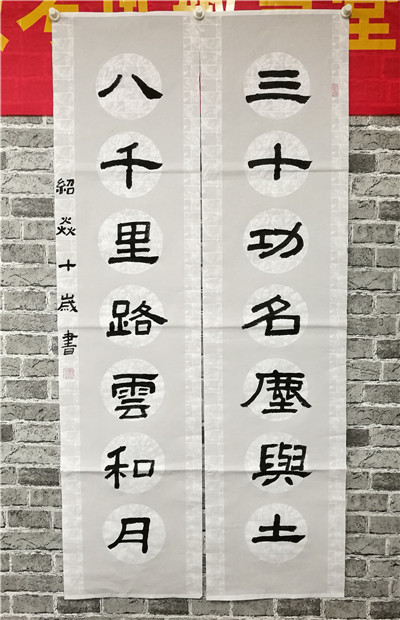 三十功名塵與土
八千里路雲和月
紹焱十歲書